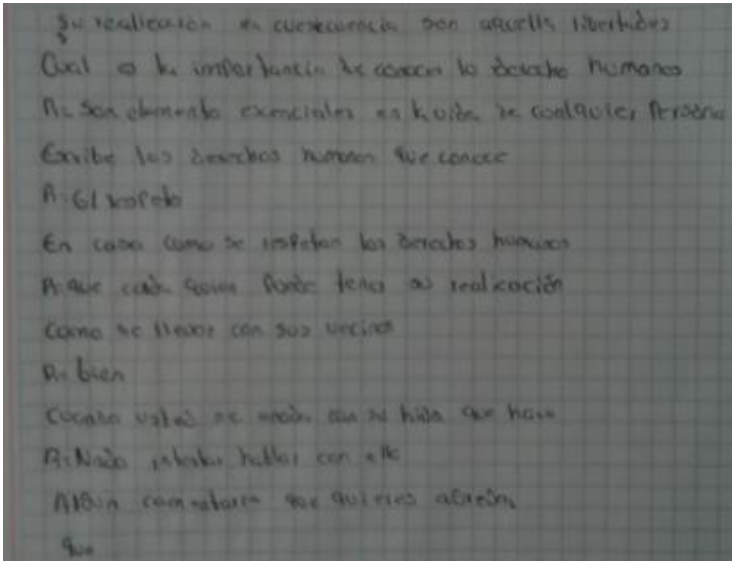 su realicación en cuesecuencia son aquella libertides
Cual es la importancia de conocer lo derecho humanos
R= Son elemento exenciales en la vida de cualquier Persona
Excribe los derechos humanos que conoce
R= El respeto
En casa como se respetan los derechos humanos
R= que cada Puede tener su realicación
como se llevor con sus vecinos
R= bien
Cuando usted se enoda con su hida que hace
R= Nada intentar hablar con ella
Algun comentario que quieres
que